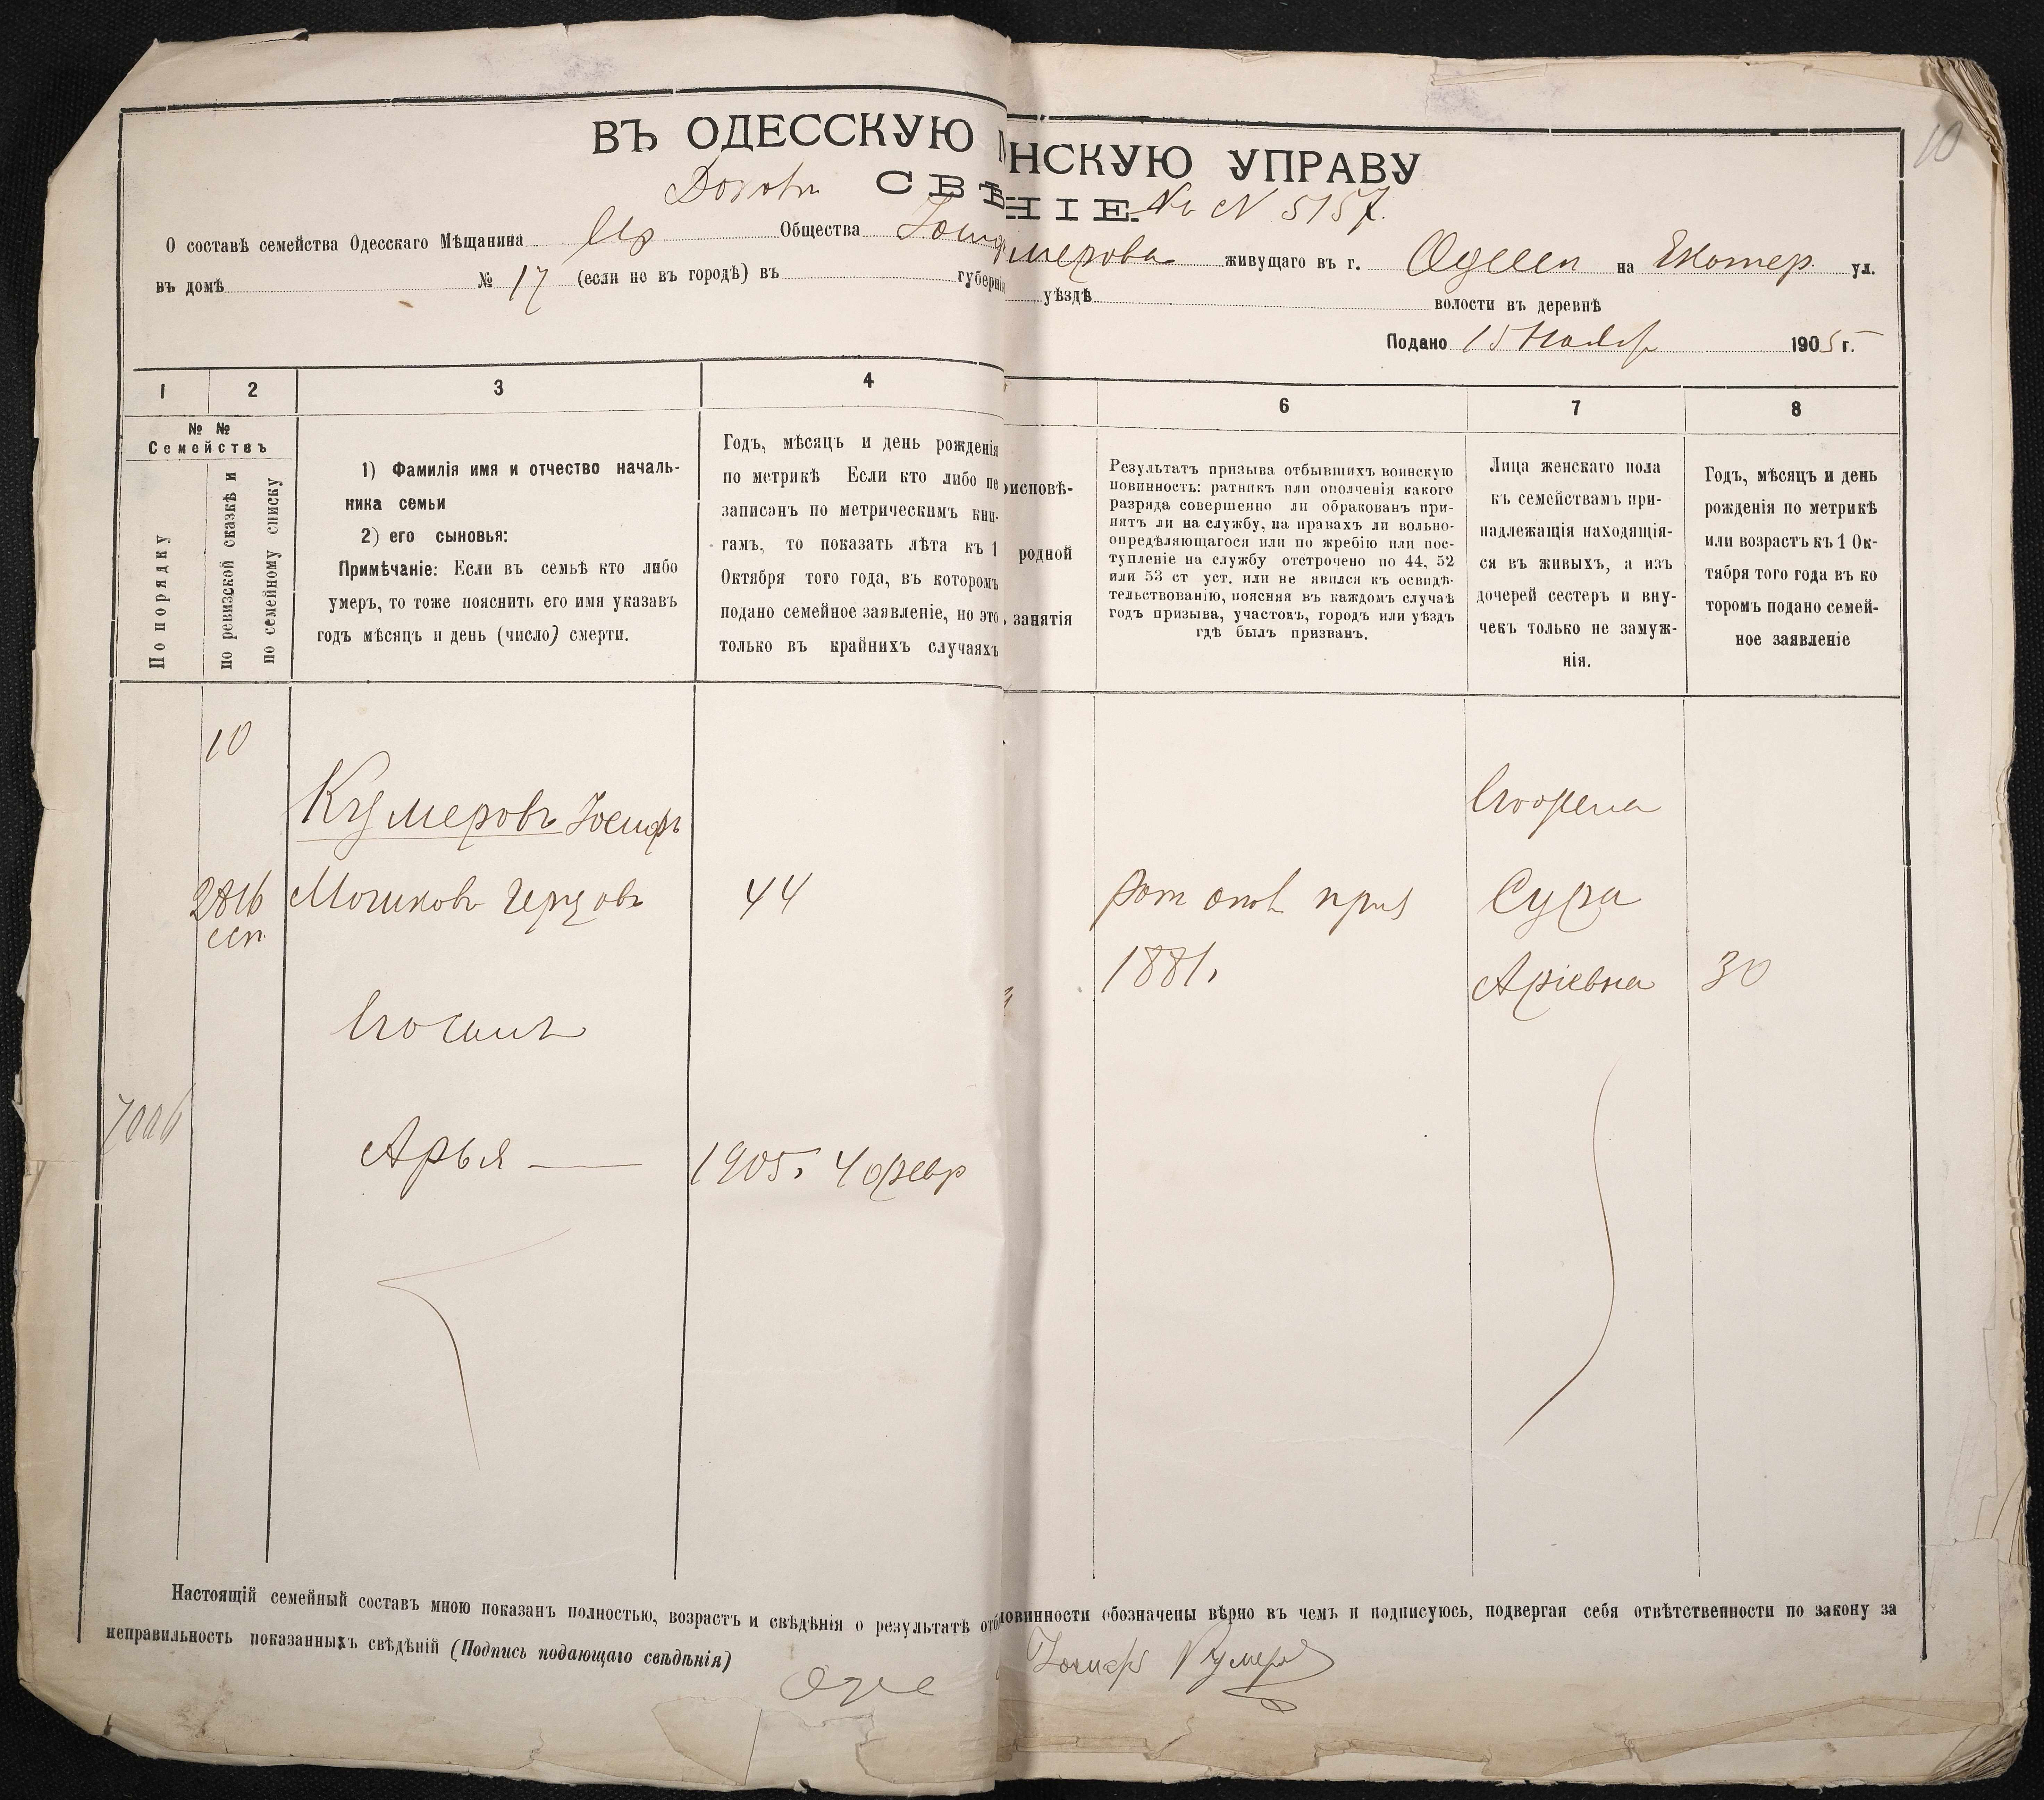 10
ВЪ ОДЕССКУЮ НСКУЮ УПРАВУ
СВѢ НІЕ № 5157.
О составѣ семейства Одесскаго Мѣщанина Евр Общества Іосиф мерова живущаго въ г. Одессѣ на Екатер. ул.
въ домѣ № 17 (если не въ городѣ) въ губерні уѣздѣ волости въ деревнѣ
Подано 15 Ноября 1905 г.
1 2 3 4 6 7 8
№ №
Семействъ
По порядку
по ревизской сказкѣ и
по семейному списку
1) Фамилія имя и отчество началь-
ника семьи
2) его сыновья:
Примѣчаніе: Если въ семьѣ кто либо
умеръ, то тоже пояснить его имя указавъ
годъ мѣсяцъ и день (число) смерти.
Годъ, мѣсяцъ и день рожденія
по метрикѣ Если кто либо не
записанъ по метрическимъ кни-
гамъ, то показать лѣта къ 1
Октября того года, въ которомъ
подано семейное заявленіе, но это
только въ крайнихъ случаяхъ
оисповѣ-
родной
занятія
Результатъ призыва отбывшихъ воинскую
повинность: ратникъ или ополченія какого
разряда совершенно ли обракованъ при-
нятъ ли на службу, на правахъ ли вольно-
опредѣляющагося или по жребію или пос-
тупленіе на службу отстрочено по 44, 52
или 53 ст уст. или не явился къ освидѣ-
тельствованію, поясняя въ каждомъ случаѣ
годъ призыва, участокъ, городъ или уѣздъ
гдѣ былъ призванъ.
Лица женскаго пола
къ семействамъ при-
надлежащія находящія-
ся въ живыхъ, а изъ
дочерей сестеръ и вну-
чекъ только не замуж-
нія.
Годъ, мѣсяцъ и день
рожденія по метрикѣ
или возрастъ къ 1 Ок-
тября того года въ ко
торомъ подано семей-
ное заявленіе
10
Кумеровъ Іосифъ
Его жена
2816 Мошковъ Герцовъ 44 рат опол приз Сура
1881. Аріевна 30
Его сынъ
Арья — 1905. 4 февр
Настоящій семейный составъ мною показанъ полностью, возрастъ и свѣдѣнія о результатѣ отб повинности обозначены вѣрно въ чемъ и подписуюсь, подвергая себя отвѣтственности по закону за
неправильность показанныхъ свѣдѣній (Подпись подающаго свѣдѣнія)
Іосифъ Кумеровъ